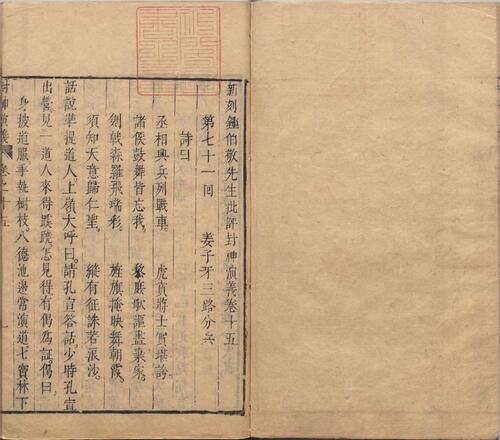 新刻鍾伯敬先生批評封神演義卷十五
第七十一回 姜子牙三路分兵
詩曰
丞相興兵列戰車 虎賁將士實堪誇
諸侯鼓舞皆忘我 黎庶歌謳盡棄家
劍戟森羅飛瑞彩 旌旗掩映舞朝霞
須知天意歸仁聖 縱有征誅若浪沙
話說準提道人上嶺大呼曰請孔宣答話少時孔宣
出營見一道人來得蹊蹺怎見得有偈為証偈曰
身披道服手執樹枝八德池邊常演道七寶林下
封神演義 卷之十五